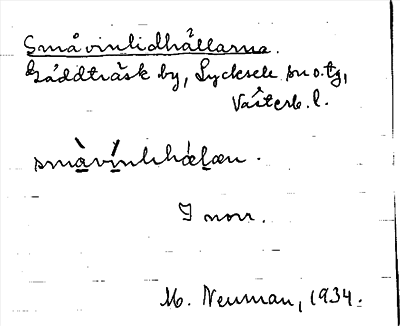 Småvinlidhällarna.
Gäddträsk by, Lycksele sn o. tg,
Västerb. l.
smàvínlihǽlæn.
I norr.
M. Neuman, 1934.